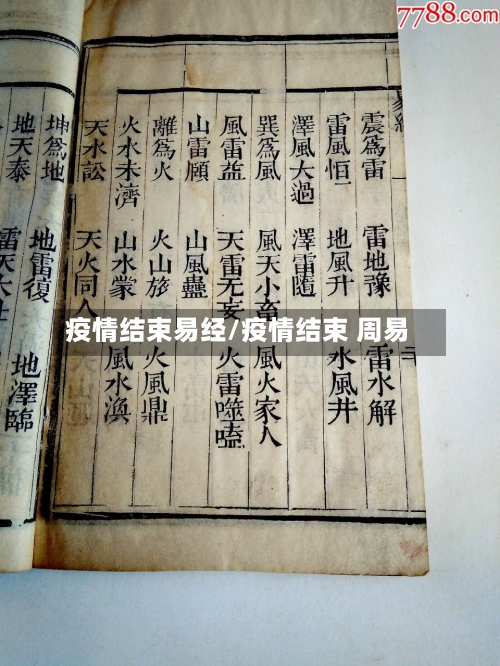 7788.com
易經
震為雷 雷地豫 雷水解
雷風恒 地風升 水風井
澤風大過 澤雷隨
巽為風 風天小畜 風火家人
風雷益 天雷无妄 火雷噬嗑
山雷頤 山風蠱
離為火 火山旅 火風鼎
火水未濟 山水蒙 風水渙
天水訟 天火同人
坤為地 地雷復 地澤臨
地天泰 雷天大壯
疫情结束易经/疫情结束 周易